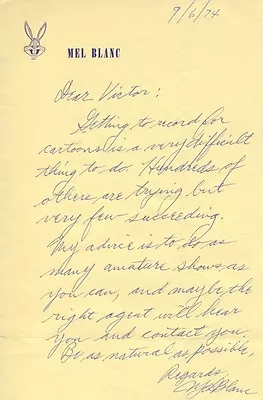 9/6/74
MEL BLANC
Dear Victor:
Getting to record for
cartoons is a very difficult
thing to do. Hundreds of
others are trying but
very few succeeding.
My advice is to do as
many amature shows as
you can, and maybe the
right agent will hear
you and contact you.
Be as natural as possible.
Regards,
Mel Blanc